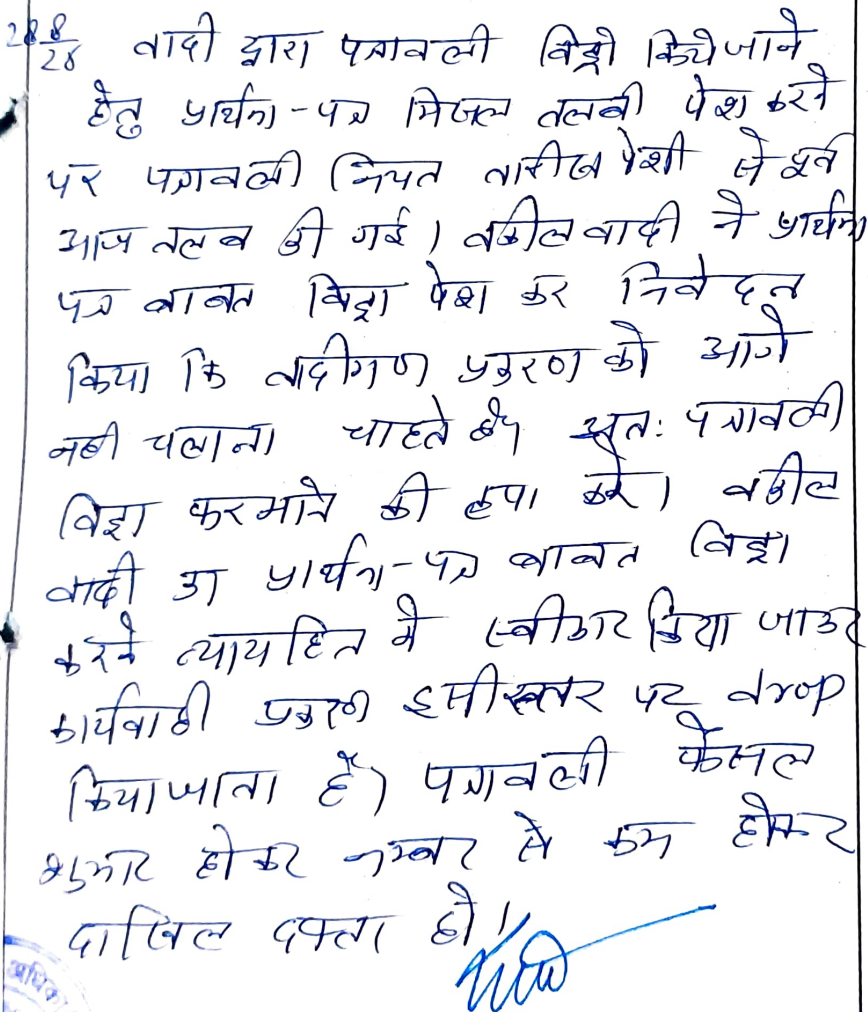 28/8/28 वादी द्वारा पत्रावली विड्रो किये जाने
हेतु प्रार्थना-पत्र मिसल तलबी पेश करने
पर पत्रावली नियत तारीख पेशी से पूर्व
आज तलब की गई। वकील वादी ने प्रार्थना
पत्र बाबत विड्रा पेश कर निवेदन
किया कि वादीगण प्रकरण को आगे
नही चलाना चाहते है। अतः पत्रावली
विड्रा फरमाने की कृपा करे। वकील
वादी का प्रार्थना-पत्र बाबत विड्रा
करने न्यायहित मे स्वीकार किया जाकर
कार्यवाही प्रकरण इसी स्तर पर drop
किया जाता है। पत्रावली फैसल
शुमार होकर नम्बर से कम होकर
दाखिल दफ्तर हो।
अधिक